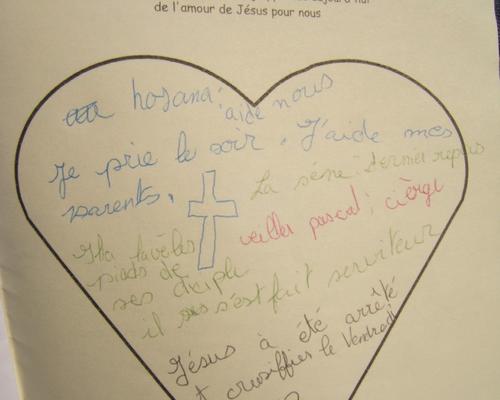 de l'amour de Jésus pour nous
hosana : aide nous
Je prie le soir. J'aide mes
parents.
La sène : dernier repas
veiller pascal : cièrge
Il a lavè les
pieds de
ses diciple
il s'est fait serviteur
Jésus à été arrêté
crusiffiés le Vendredi